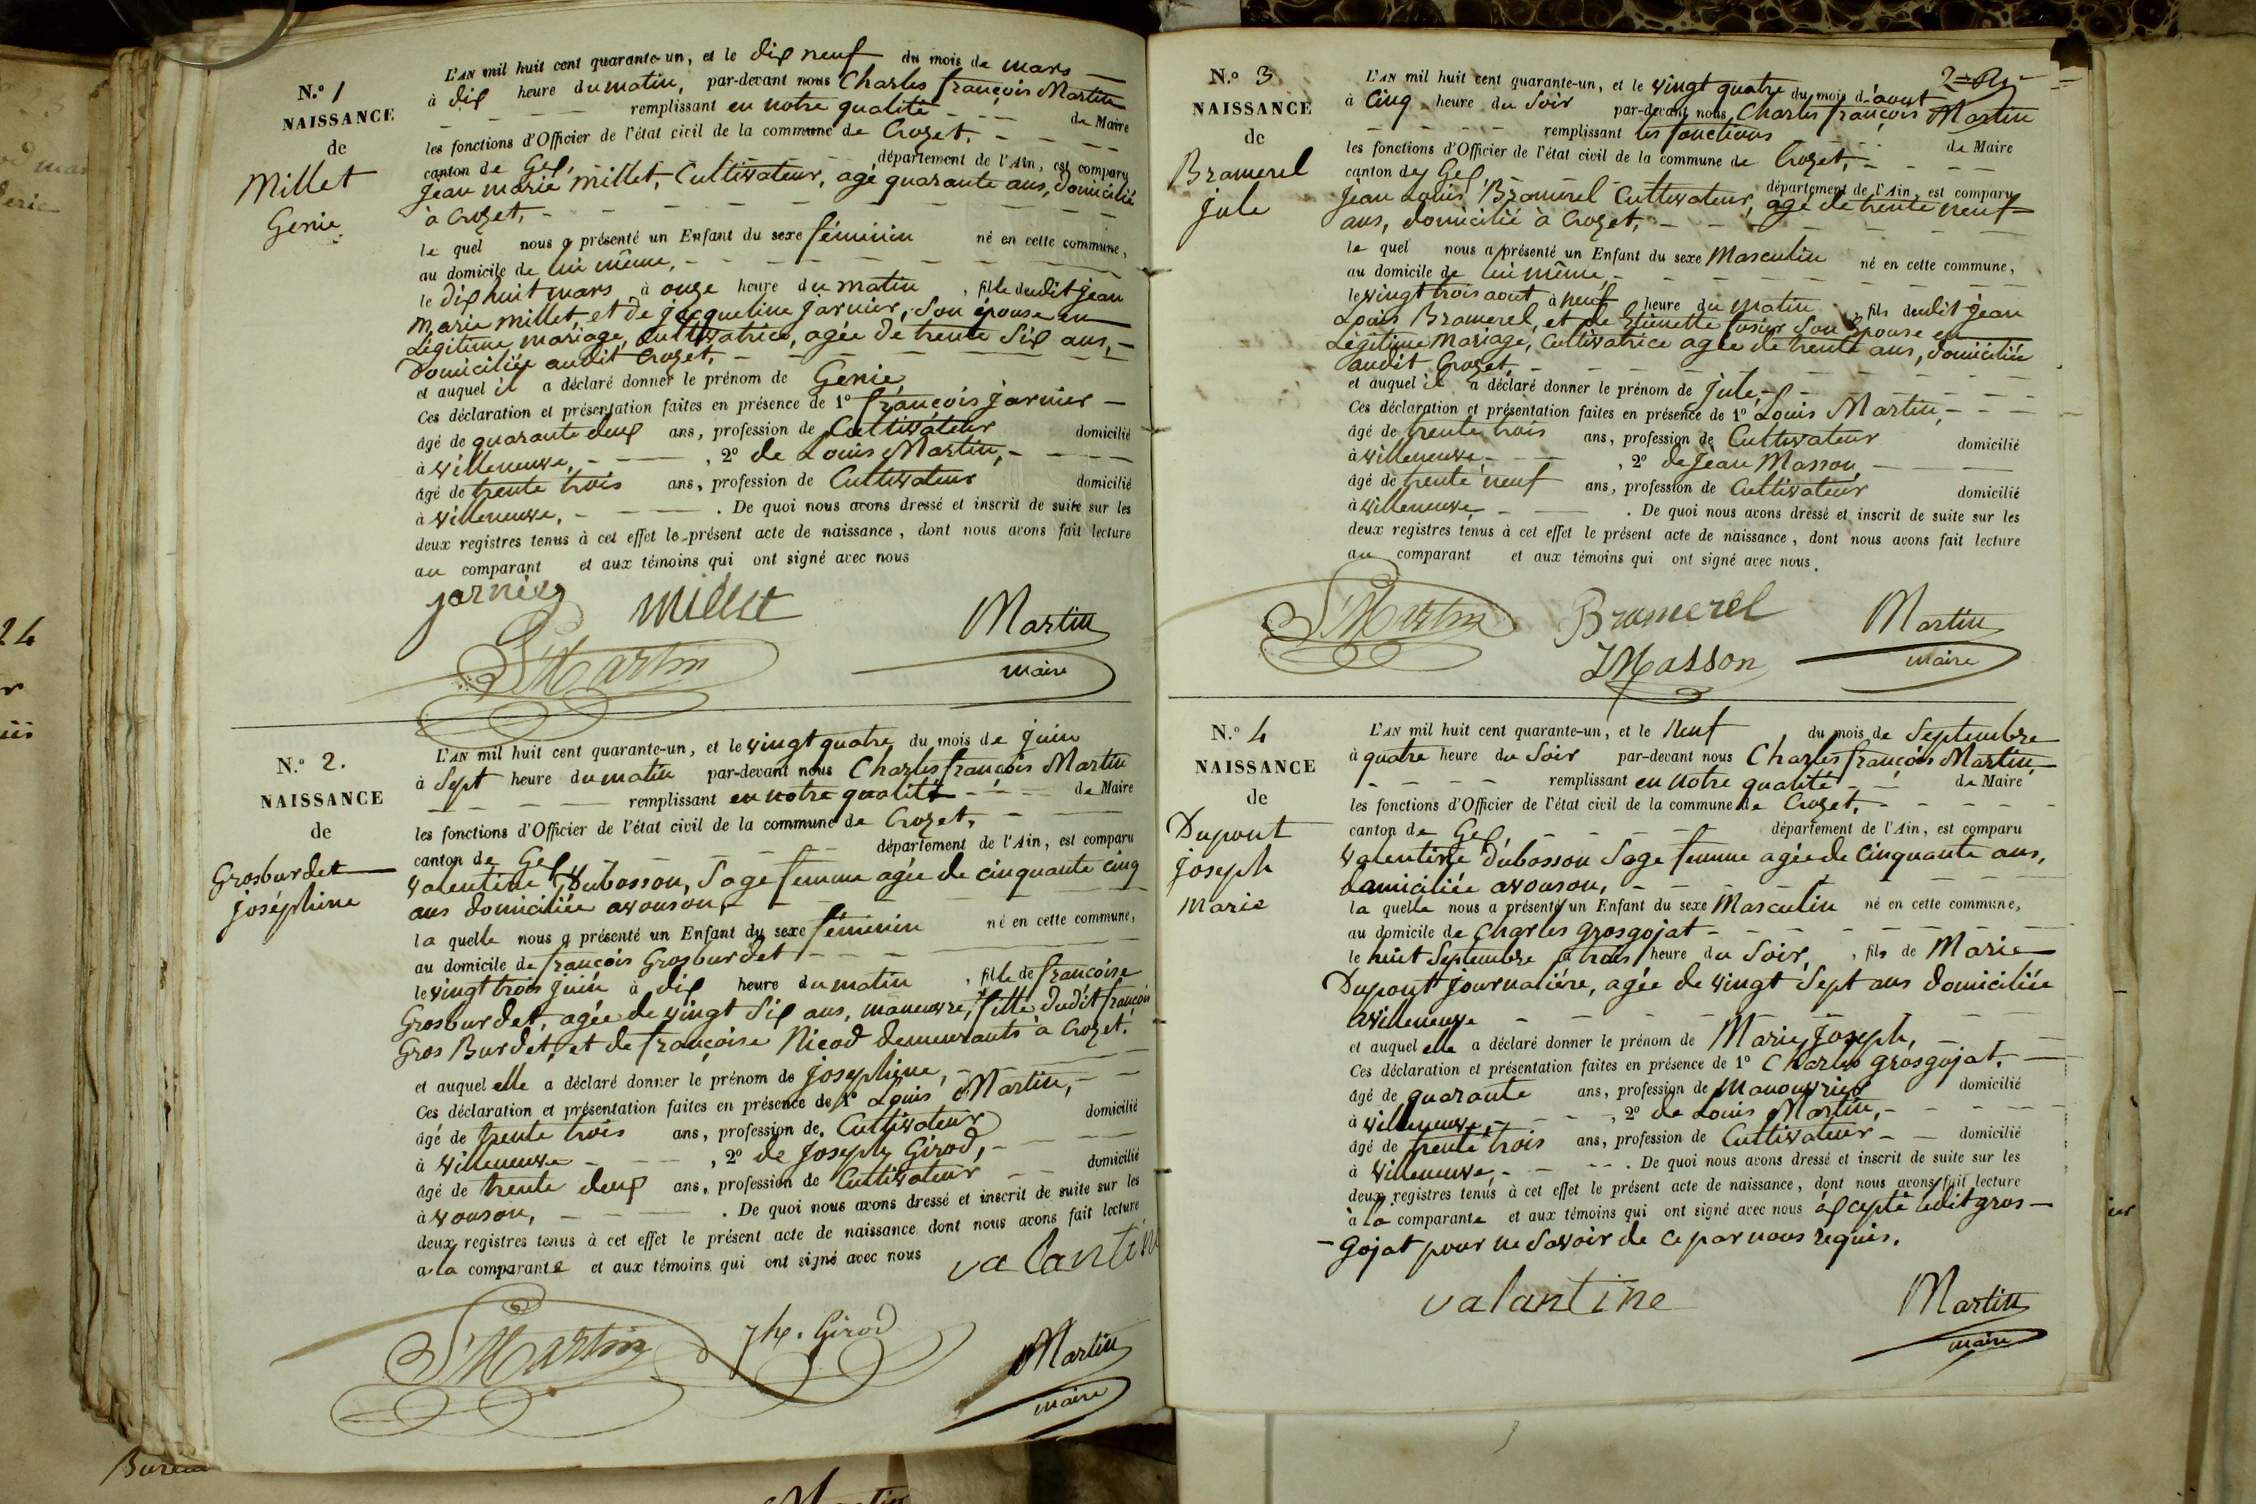 N.° 1
NAISSANCE
de
Millet
Genie
L'AN mil huit cent quarante-un, et le dix neuf du mois de mars
à dix heure du matin, par-devant nous Charles françois Martin
remplissant en notre qualité de Maire
les fonctions d'Officier de l'état civil de la commune de Crozet,
canton de Gex, département de l'Ain, est comparu
Jean marie millet, Cultivateur, agé quarante ans, domicilié
à Crozet,
le quel nous a présenté un Enfant du sexe féminin né en cette commune,
au domicile de lui même,
le dix huit mars à onze heure du matin, fille dudit jean
marie millet, et de jacqueline jarnier, son épouse en
Légitime mariage, Cultivatrice, agée de trente six ans,
domiciliée audit Crozet,
et auquel il a déclaré donner le prénom de Genie
Ces déclaration et présentation faites en présence de 1° françois jarnier
âgé de quarante deux ans, profession de Cultivateur domicilié
à villeneuve, , 2° de Louis Martin,
âgé de trente trois ans, profession de Cultivateur domicilié
à villeneuve, . De quoi nous avons dressé et inscrit de suite sur les
deux registres tenus à cet effet le présent acte de naissance, dont nous avons fait lecture
au comparant et aux témoins qui ont signé avec nous
jarnier millet Martin
Martin maire
N.° 2.
NAISSANCE
de
Grosburdet
joséphine
L'AN mil huit cent quarante-un, et le vingt quatre du mois de juin
à Sept heure du matin par-devant nous Charles françois Martin
remplissant en notre qualité de Maire
les fonctions d'Officier de l'état civil de la commune de Crozet,
canton de Gex, département de l'Ain, est comparu
Valentine Dubosson, Sage femme agée de cinquante cinq
ans domiciliée avouson,
la quelle nous a présenté un Enfant du sexe féminin né en cette commune,
au domicile de françois Grosburdet
le vingt trois juin à dix heure du matin, fille de françoise
Grosburdet, agée de vingt Six ans, maneuvre, fille dudit françois
Gros Burdet, et de françoise Nicod demeurants à Crozet.
et auquel elle a déclaré donner le prénom de josephine,
Ces déclaration et présentation faites en présence de 1° Louis Martin,
âgé de trente trois ans, profession de Cultivateur domicilié
à villeneuve , 2° de Joseph Girod,
âgé de trente deux ans, profession de Cultivateur domicilié
à vouson, . De quoi nous avons dressé et inscrit de suite sur les
deux registres tenus à cet effet le présent acte de naissance dont nous avons fait lecture
a la comparante et aux témoins qui ont signé avec nous valantin
Martin jh. Girod Martin
maire
N.° 3
NAISSANCE
de
Bramerel
jule
L'AN mil huit cent quarante-un, et le vingt quatre du mois d'aout
à Cinq heure du Soir par-devant nous Charles françois Martin
remplissant les fonctions de Maire
les fonctions d'Officier de l'état civil de la commune de Crozet,
canton de Gex, département de l'Ain, est comparu
Jean Louis Bramerel Cultivateur, agé de trente neuf
ans, domicilié à Crozet,
le quel nous a présenté un Enfant du sexe Masculin né en cette commune,
au domicile de lui même,
le vingt trois aout à neuf heure du matin, fils dudit jean
Louis Bramerel, et de Etienette son Epouse en
Légitime Mariage, Cultivatrice agée de trente ans, domiciliée
audit Crozet,
et auquel il a déclaré donner le prénom de jule,
Ces déclaration et présentation faites en présence de 1° Louis Martin,
âgé de trente trois ans, profession de Cultivateur domicilié
à villeneuve, , 2° de Jean Masson
âgé de trente neuf ans, profession de Cultivateur domicilié
à villeneuve . De quoi nous avons dressé et inscrit de suite sur les
deux registres tenus à cet effet le présent acte de naissance, dont nous avons fait lecture
au comparant et aux témoins qui ont signé avec nous.
Martin Bramerel Martin
JMasson maire
N.° 4
NAISSANCE
de
Dupont
joseph
marie
L'AN mil huit cent quarante-un, et le neuf du mois de Septembre
à quatre heure du Soir par-devant nous Charles françois Martin,
remplissant en notre qualité de Maire
les fonctions d'Officier de l'état civil de la commune de Crozet,
canton de Gex, département de l'Ain, est comparu
Valentine Dubosson Sage femme agée de Cinquante ans,
domiciliée avouson,
la quelle nous a présenté un Enfant du sexe Masculin né en cette commune,
au domicile de Charles grosgojat
le huit Septembre à trois heure du Soir, fils de Marie
Dupont journaliére, agée de vingt Sept ans domiciliée
avilleneuve
et auquel elle a déclaré donner le prénom de Marie Joseph,
Ces déclaration et présentation faites en présence de 1° Charles grosgojat,
âgé de quarante ans, profession de manouvrier domicilié
à villeneuve, , 2° de Louis Martin,
âgé de trente trois ans, profession de Cultivateur domicilié
à villeneuve, . De quoi nous avons dressé et inscrit de suite sur les
deux registres tenus à cet effet le présent acte de naissance, dont nous avons fait lecture
à la comparante et aux témoins qui ont signé avec nous excepté ledit gros
gojat pour ne Savoir de ce par nous requis.
valantine Martin
maire